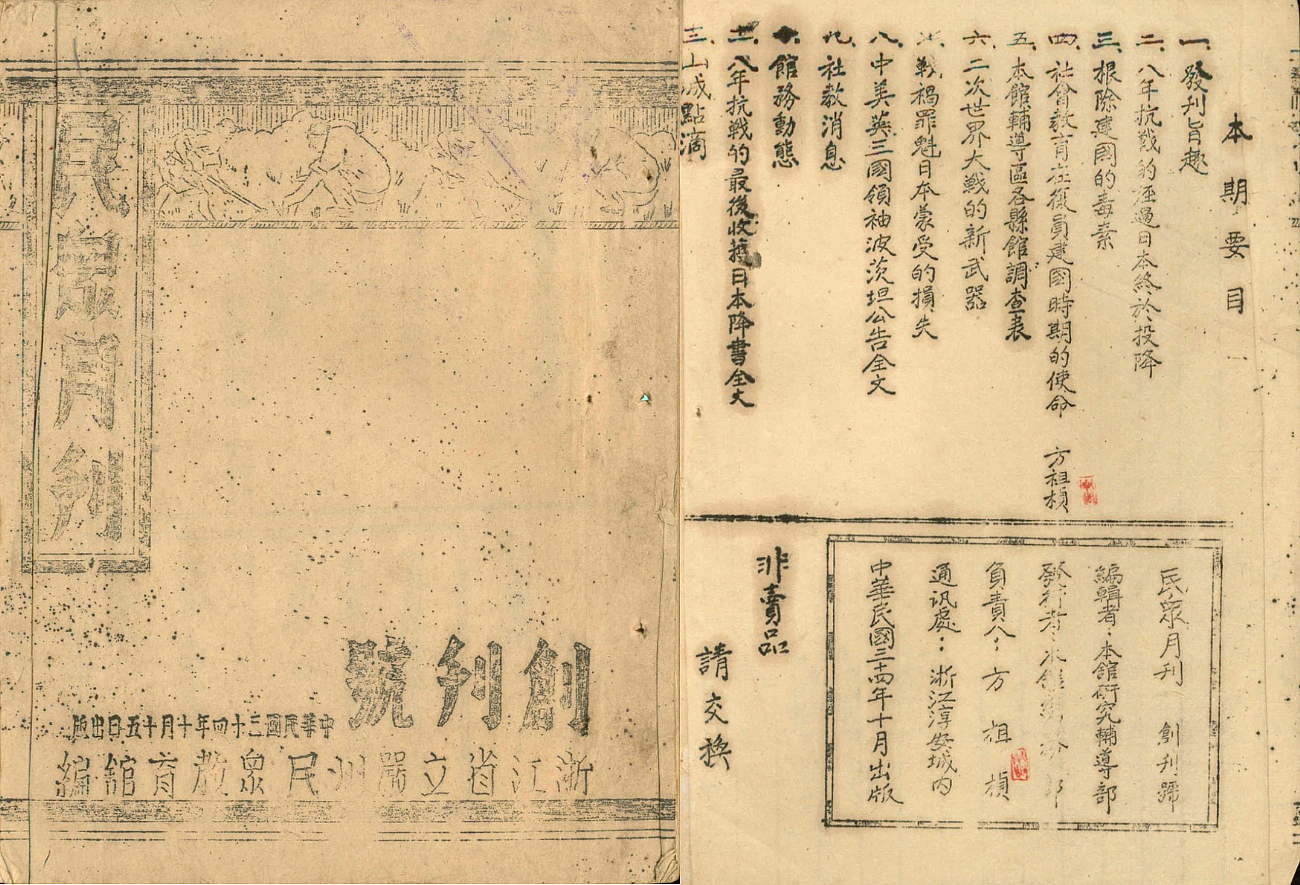 民衆月刊
創刊號
中華民國三十四年十月十五日出版
浙江省立嚴州民衆教育館編
本期要目
一、發刊旨趣
二、八年抗戰的經過日本終於投降
三、根除建國的毒素
四、社會教育在復員建國時期的使命 方祖楨
五、本館輔導區各縣館調查表
六、二次世界大戰的新武器
七、戰禍罪魁日本蒙受的損失
八、中美英三國領袖波茨坦公告全文
九、社教消息
十、館務動態
十一、八年抗戰的最後收穫日本降書全文
三、山城點滴
民眾月刊 創刊號
編輯者：本館研究輔導部
發行者：本館
負責人：方祖楨
通讯處：浙江淳安城内
中華民國三十四年十月出版
非賣品
請交換